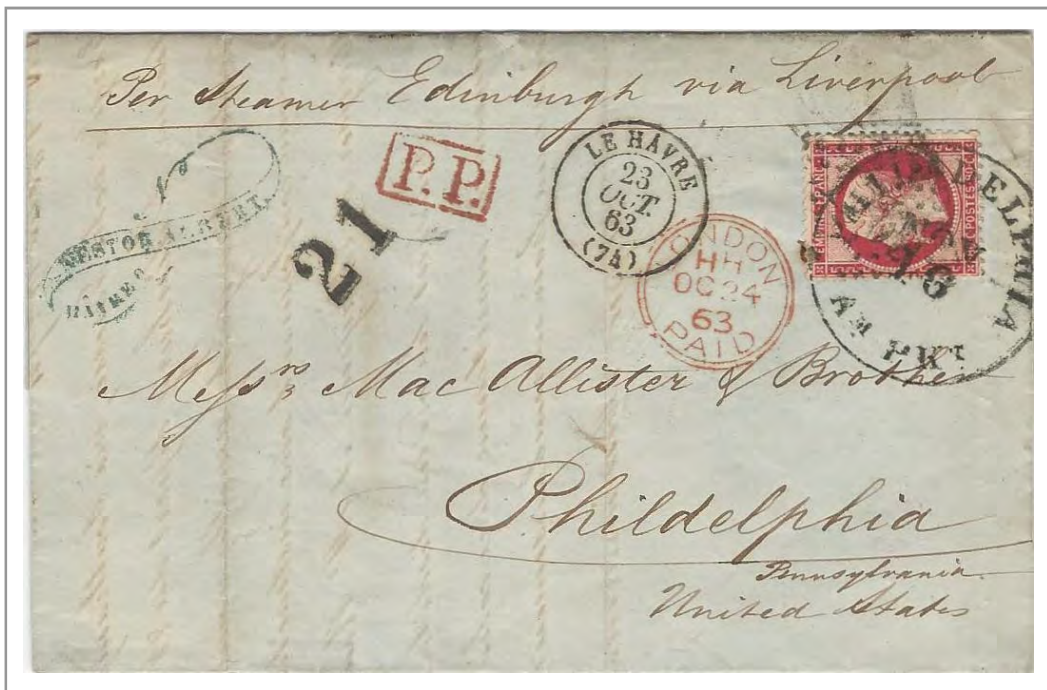 Per Steamer Edinburgh via Liverpool
NESTOR ALBERT
HAVRE
P.P.
21
LE HAVRE
23
OCT.
63
(74)
LONDON
HH
OC 24
63
PAID
EMPIRE FRANC
POSTES
PHILADELPHIA
16
AM PKT
Mess.rs Mac Allister & Brother
Phildelphia
Pennsylvania
United States